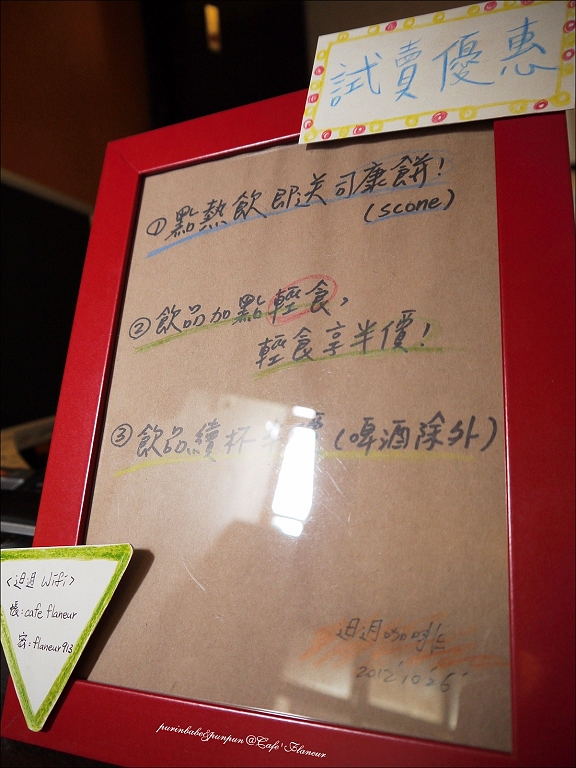 試賣優惠
①點熱飲即送司康餅!
(scone)
②飲品加點輕食,
輕食享半價!
③飲品續杯半價(啤酒除外)
<迌迌 Wifi>
帳:cafe flaneur
密:flaneur913
迌迌咖啡
2012'10'25'
purinbabe&punpun @Café Flaneur